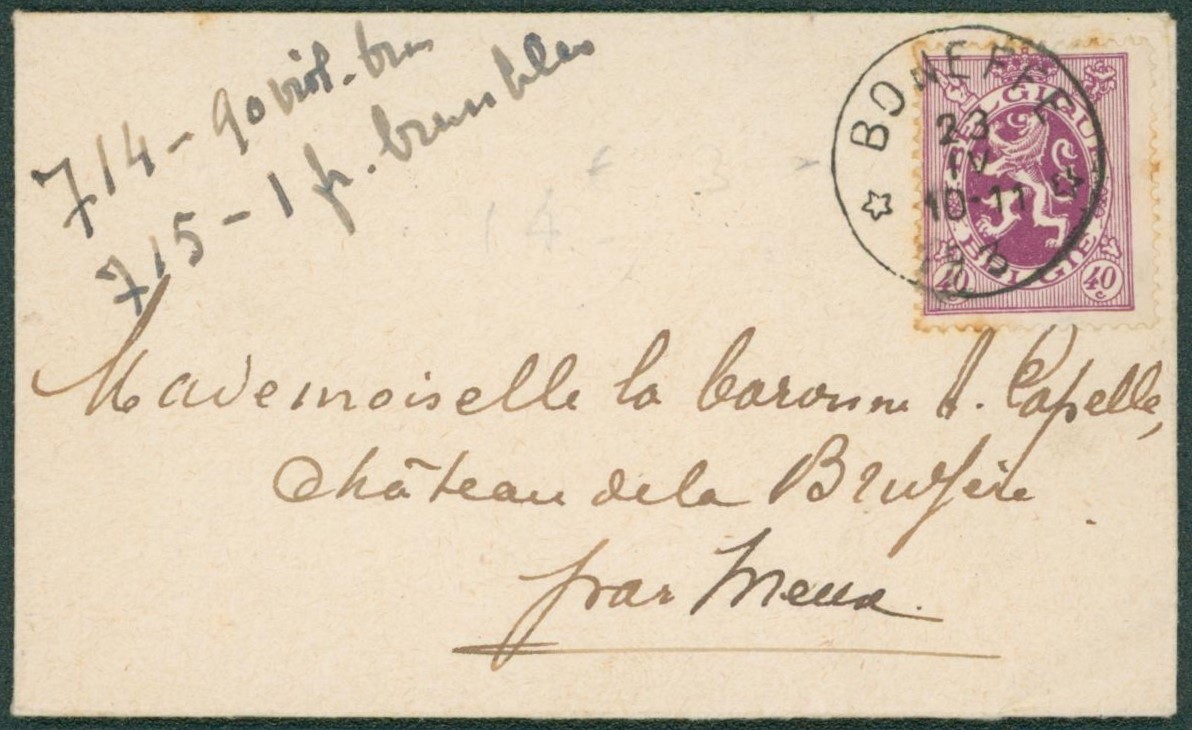 714 - 90 viol. brun
715 - 1 fr. brun bleu
BONEFFE
23
IV
10-11
BELGIQUE
BELGIE
40 40
c
Mademoiselle la baronne A. Capelle,
Château de la Bruyère
par Meux.